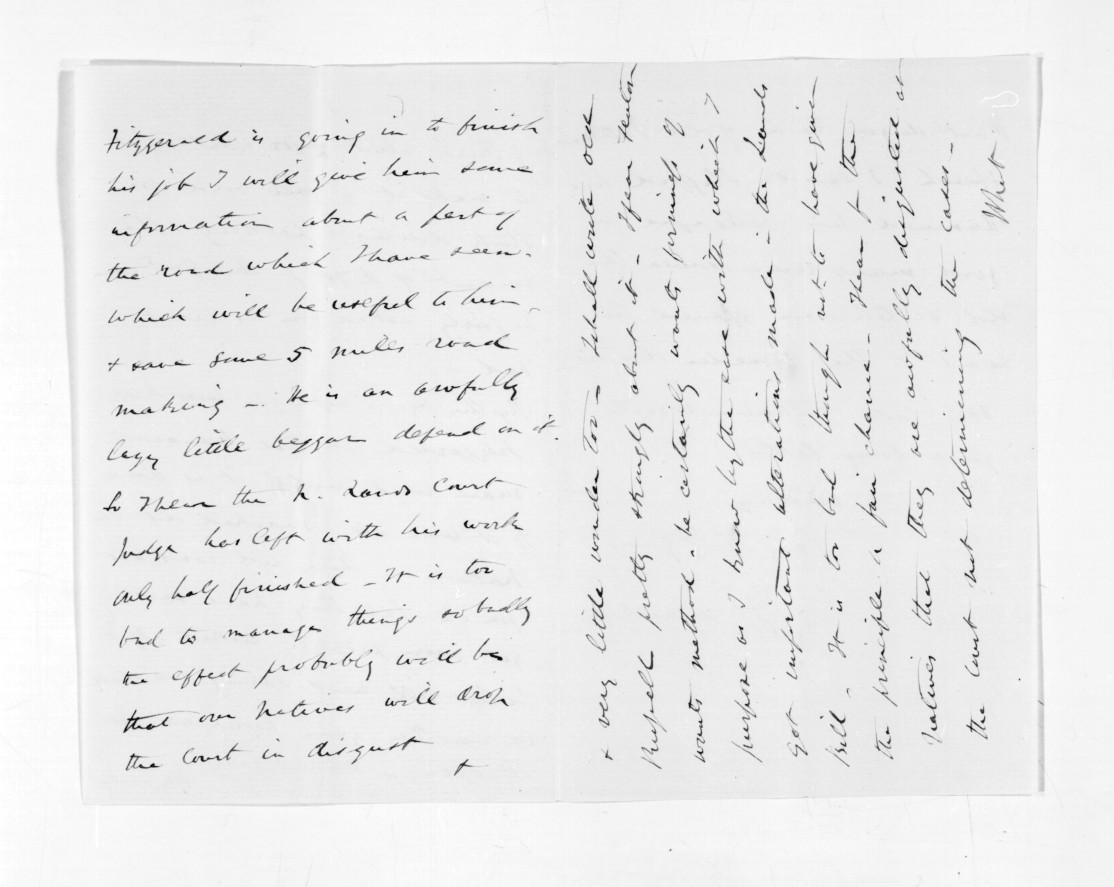 Fitzgerald is going in to finish
his job I will give him some
information about a part of
the road which I have seen -
which will be useful to him -
+ save some 5 miles road
making - He is an awfully
lazy little beggar depend on it.
So I hear the N. Lands Court
Judge has left with his work
only half finished - It is too
bad to manage things so badly
the effect probably will be
that our Natives will drop
the Court in disgust +
+ very little wonder too - I shall write old
Russell pretty strongly about it - I fear Fenton
wants method - he certainly wants fixings of
purpose as I know by the ease with which I
got important alterations made in the Lands
Bill - It is too bad though not to have given
the principle a fair chance - I hear from the
Natives that they are awfully disgusted at
the Court not determining the cases -
What